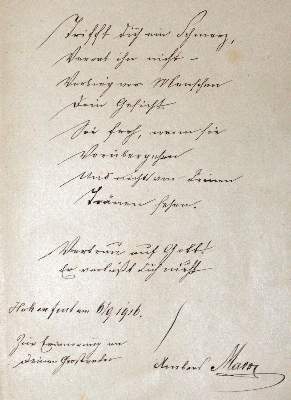 Trifft dich ein Schmerz,
Verrat ihn nicht –
Verbirg vor Menschen
Dein Gesicht.
Sei froh, wenn sie
Vorübergehen
Und nicht von Deinen
Tränen sehen.
Vertrau auf Gott!
Er verläßt dich nicht
am 6/9 1916.
Zur Erinnerung an
Deinen